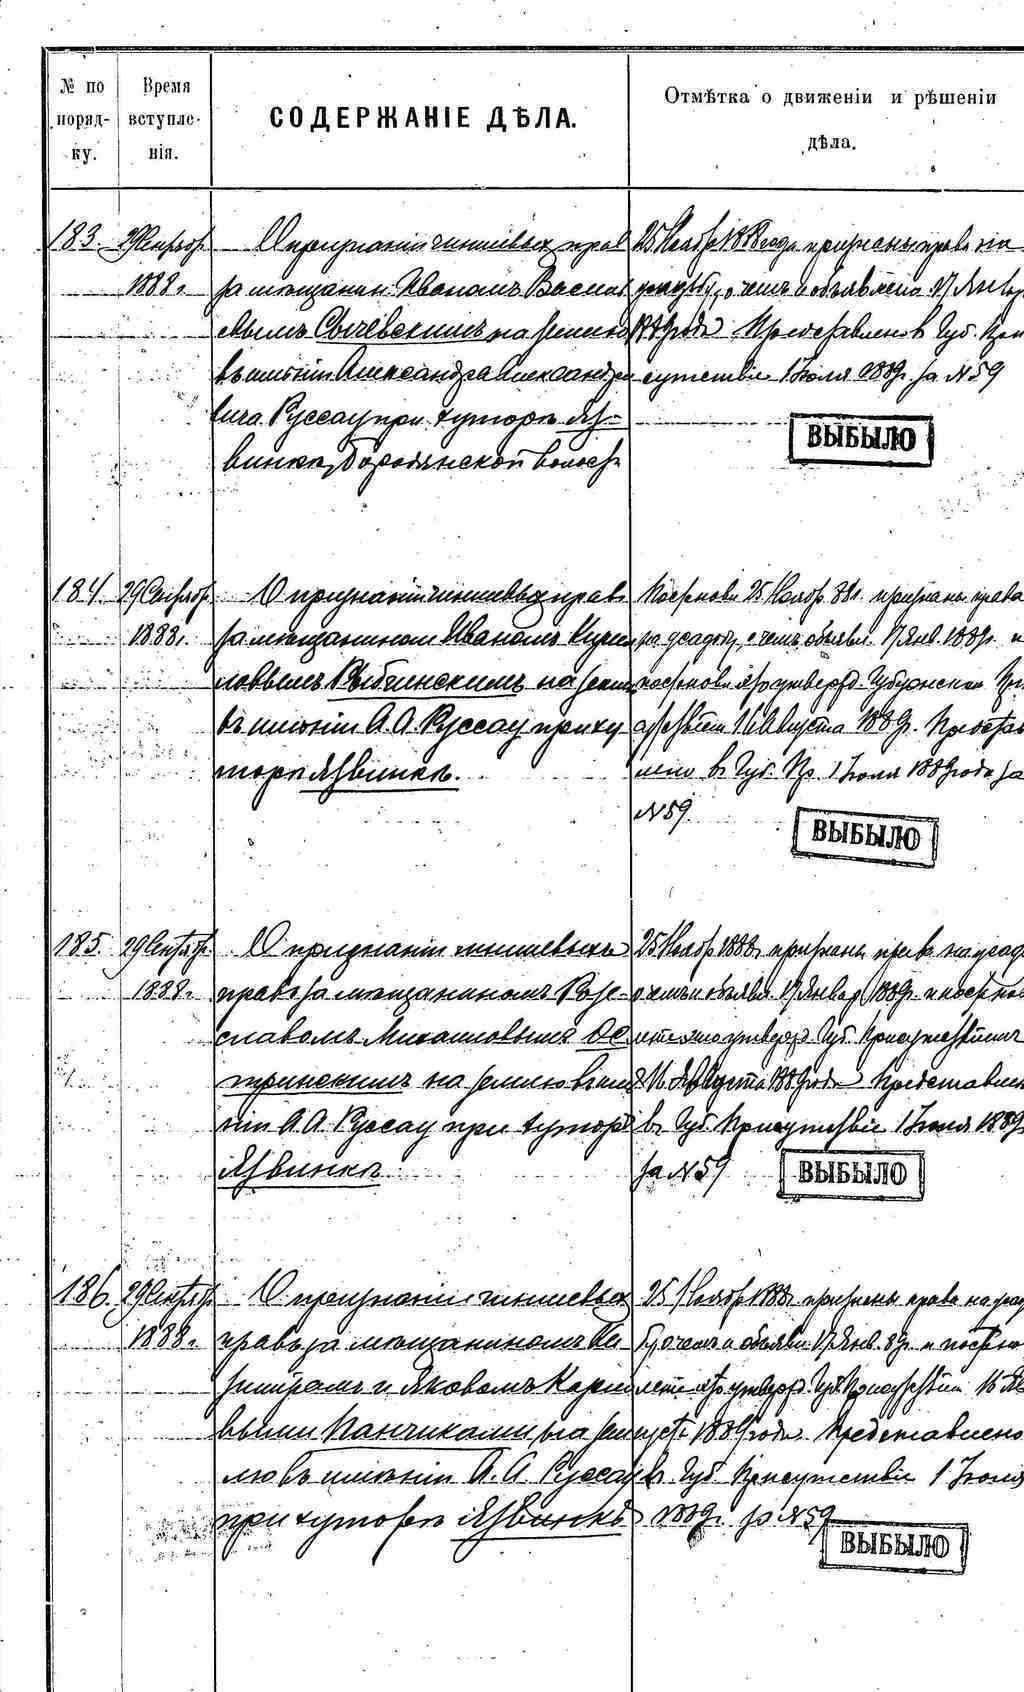 № по поряд- ку.
Время вступле- нія.
СОДЕРЖАНІЕ ДѢЛА.
Отмѣтка о движеніи и рѣшеніи
дѣла.
183. 29 Сентябр. 1888 г.
О признаніи чиншевыхъ правъ
за мѣщанин. Иваномъ Василь
евымъ Сычевскимъ на землю
въ имѣніи Александра Александро
вича Руссау при хуторѣ Яз-
винкѣ, Бородянской волости
25 Ноябр 1888 года признаны права на
усадьбу, о чемъ и объявлено 17 Январ.
1889 года. Представлено въ Губ. При
сутствіе 1 Іюля 1889 г. за № 59
ВЫБЫЛО
184. 29 Сентябр. 1888 г.
О признаніи чиншевыхъ правъ
за мѣщаниномъ Иваномъ
Рыбчинскимъ на землю
въ имѣніи А. А. Руссау при ху
торѣ Язвинкѣ.
25 Ноябр. 88 г. признаны права
на усадьбу, о чемъ объявл. 17 Янв. 1889 г. и
утвержд. Губернскимъ При
16 Августа 1889 г. Представ
лено въ Губ. Пр. 1 Іюля 1889 года за
№ 59.
ВЫБЫЛО
185. 29 Сентябр. 1888 г.
О признаніи чиншевыхъ
правъ за мѣщаниномъ
славомъ Михаиловымъ Ос
тринскимъ на землю въ имѣ
ніи А. А. Руссау при хуторѣ
Язвинкѣ
25 Ноябр 1888 г. признаны права на усадь
о чемъ и объявл. 17 Январ. 1889 г. и
утвержд. Губ. Присутствіемъ
16 Августа 1889 года. Представлено
въ Губ. Присутствіе 1 Іюля 1889
за № 59
ВЫБЫЛО
186. 29 Сентябр. 1888 г.
О признаніи чиншевыхъ
правъ за мѣщаниномъ Ка
зимірамъ и Яковомъ
выми Панчиками, на зем
лю въ имѣніи А. А. Руссау
при хуторѣ Язвинкѣ
25 Ноябр 1888 г. признаны права на усад
бу, о чемъ и объявл. 17 Янв. 89 г. и
утвержд. Губ. Присутствіем 16 Ав
густа 1889 года. Представлено
въ Губ. Присутствіе 1 Іюля
1889 г. за № 59
ВЫБЫЛО